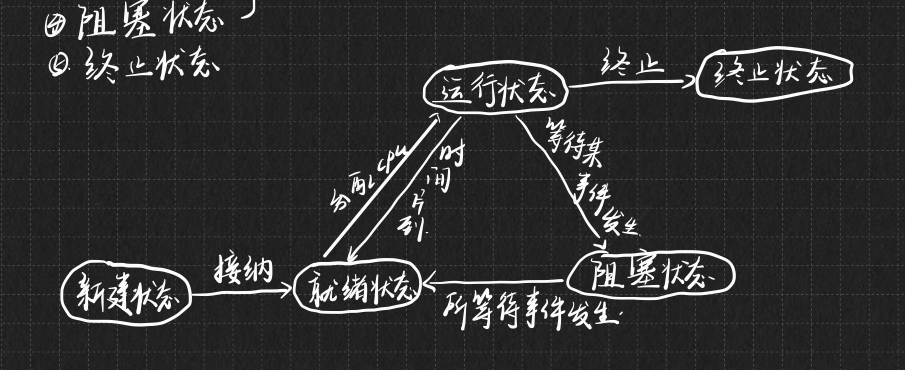 ④ 阻塞状态
⑤ 终止状态
运行状态
终止
终止状态
分配cpu
时间片到.
等待某事件发生.
新建状态
接纳
就绪状态
阻塞状态
所等待事件发生.